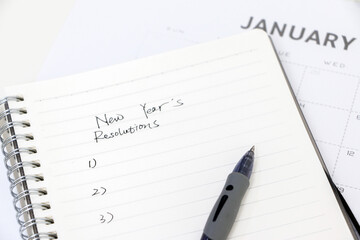 JANUARY
TUE WED
New Year's
Resolutions
1)
2)
3)